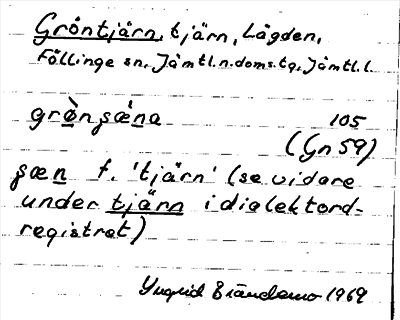 Gröntjärn, tjärn, Lågden,
Föllinge sn, Jämtl.n.doms.tg, Jämtl.l.
grø̀nʂǽna 105
(Gn 59)
ʂæn f. 'tjärn' (se vidare
under tjärn i dialektord-
registret)
Yngrid Brändemo 1969